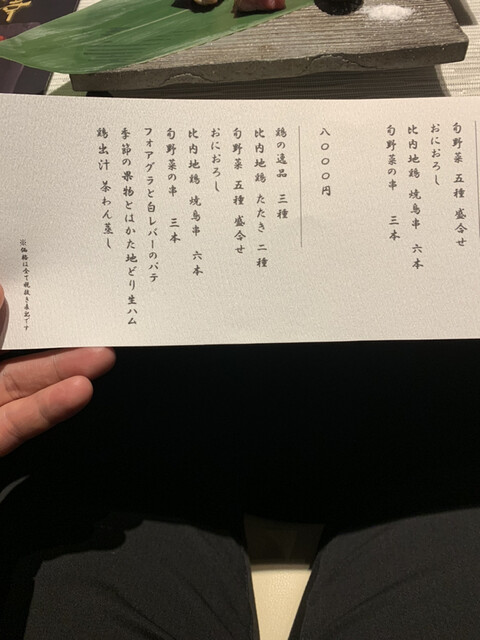 旬野菜 五種 盛合せ
おにおろし
比内地鶏 焼鳥串 六本
旬野菜の串 三本
八〇〇〇円
鶏の逸品 三種
比内地鶏 たたき 二種
旬野菜 五種 盛合せ
おにおろし
比内地鶏 焼鳥串 六本
旬野菜の串 三本
フォアグラと白レバーのパテ
季節の果物とはかた地どり生ハム
鶏出汁 茶わん蒸し
※価格は全て税抜き表記です